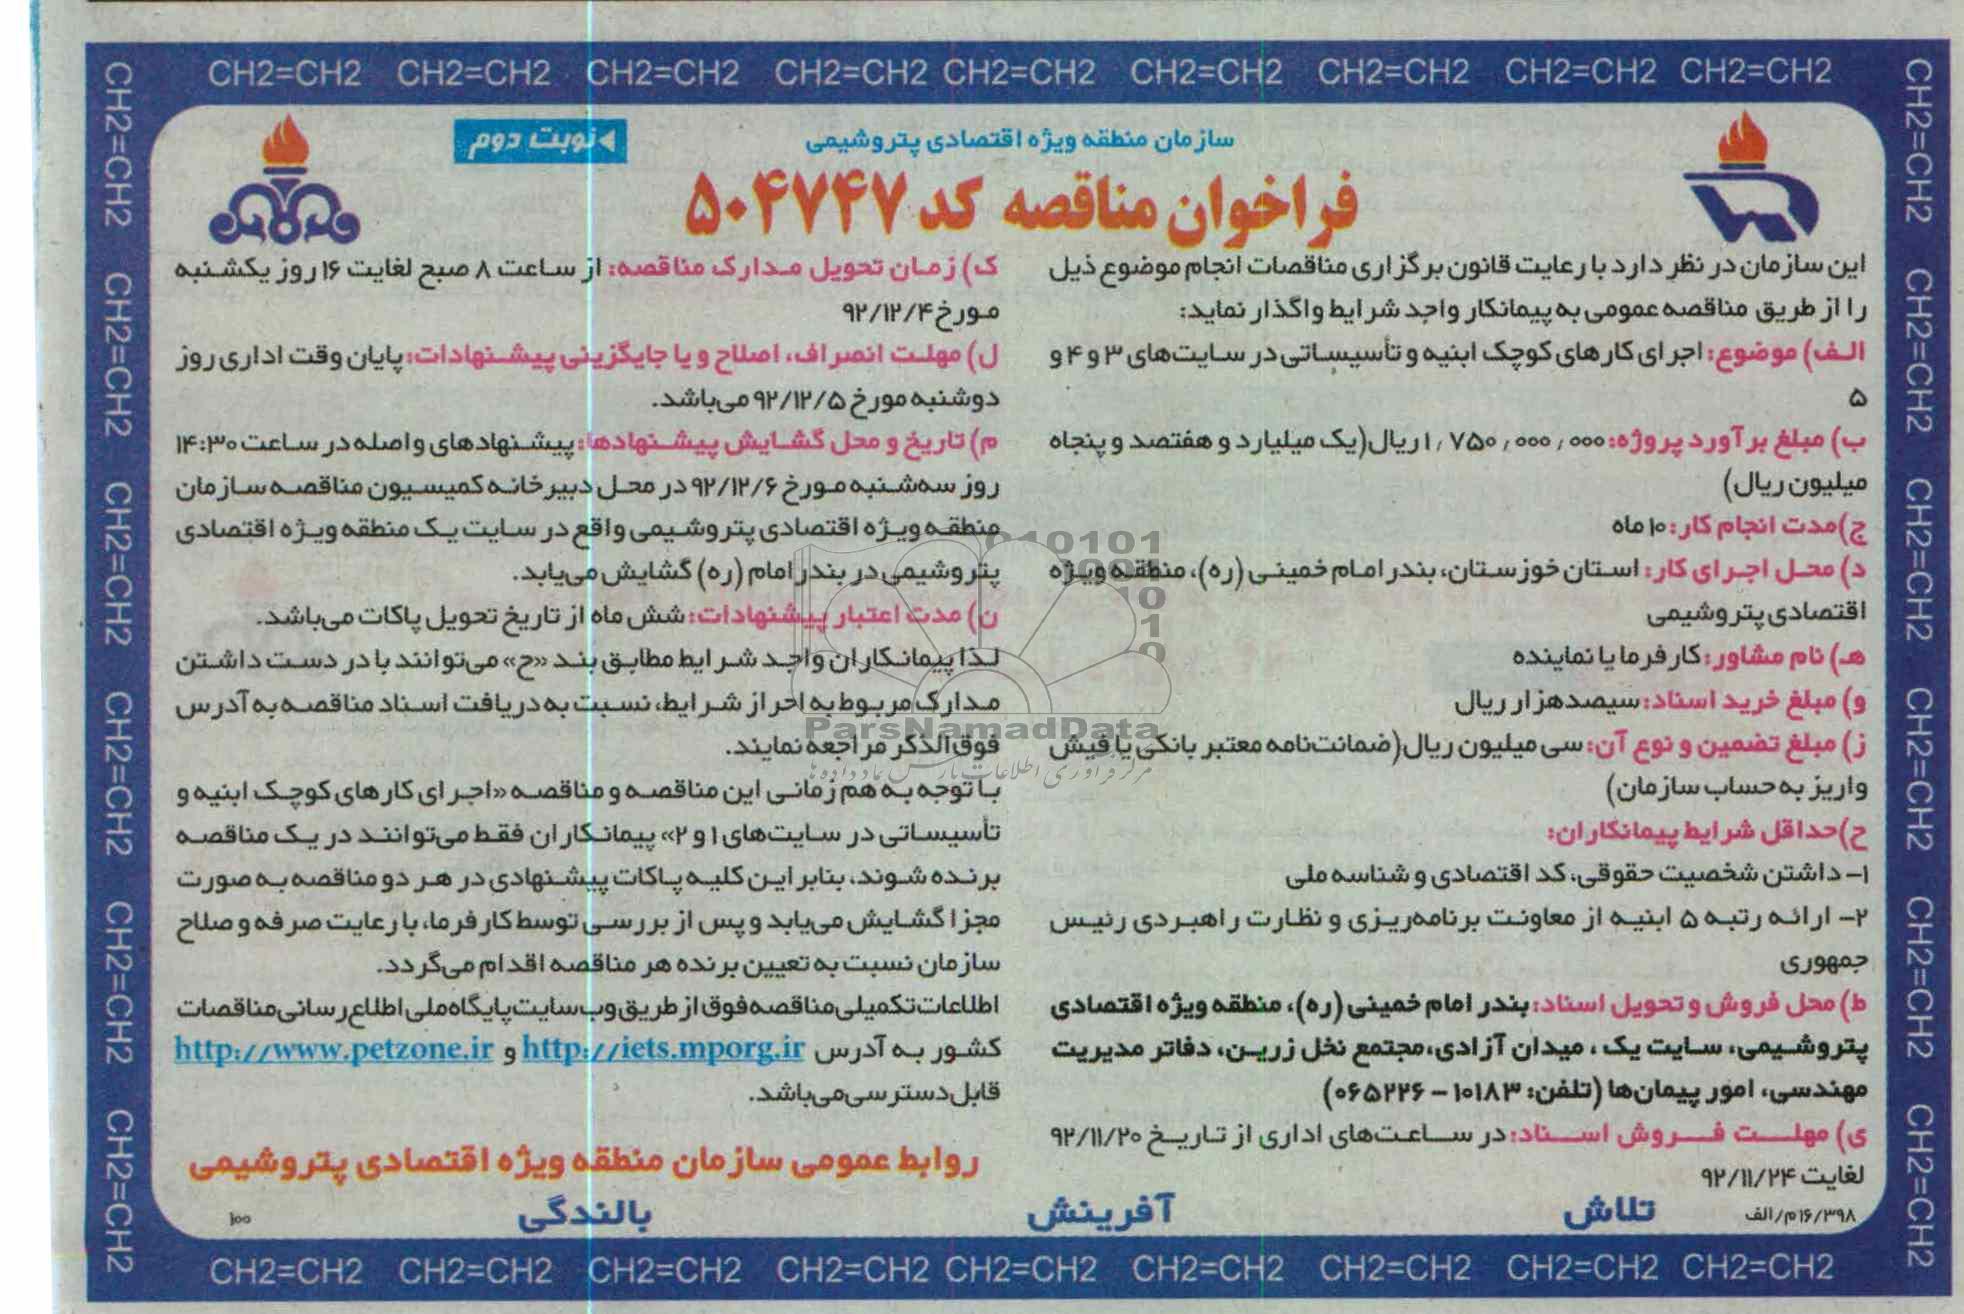 CH2=CH2 CH2=CH2 CH2=CH2 CH2=CH2 CH2=CH2 CH2=CH2 CH2=CH2 CH2=CH2 CH2=CH2
◂نوبت دوم
سازمان منطقه ویژه اقتصادی پتروشیمی
فراخوان مناقصه کد ۵۰۴۷۴۷
این سازمان در نظر دارد با رعایت قانون برگزاری مناقصات انجام موضوع ذیل
را از طریق مناقصه عمومی به پیمانکار واجد شرایط واگذار نماید:
الف) موضوع: اجرای کارهای کوچک ابنیه و تأسیساتی در سایت‌های ۳ و ۴ و
۵
ب) مبلغ برآورد پروژه: ۱٫۷۵۰٫۰۰۰٫۰۰۰ ریال(یک میلیارد و هفتصد و پنجاه
میلیون ریال)
ج)مدت انجام کار: ۱۰ ماه
د) محل اجرای کار: استان خوزستان، بندر امام خمینی (ره)، منطقه ویژه
اقتصادی پتروشیمی
هـ) نام مشاور: کارفرما یا نماینده
و) مبلغ خرید اسناد: سیصدهزار ریال
ز) مبلغ تضمین و نوع آن: سی میلیون ریال(ضمانت‌نامه معتبر بانکی یا فیش
واریز به حساب سازمان)
ح)حداقل شرایط پیمانکاران:
۱- داشتن شخصیت حقوقی، کد اقتصادی و شناسه ملی
۲- ارائه رتبه ۵ ابنیه از معاونت برنامه‌ریزی و نظارت راهبردی رئیس
جمهوری
ط) محل فروش و تحویل اسناد: بندر امام خمینی (ره)، منطقه ویژه اقتصادی
پتروشیمی، سایت یک ، میدان آزادی،مجتمع نخل زرین، دفاتر مدیریت
مهندسی، امور پیمان‌ها (تلفن: ۱۰۱۸۳ - ۰۶۵۲۲۶)
ی) مهلت فروش اسناد: در ساعت‌های اداری از تاریخ ۹۲/۱۱/۲۰
لغایت ۹۲/۱۱/۲۴
ک) زمان تحویل مدارک مناقصه: از ساعت ۸ صبح لغایت ۱۶ روز یکشنبه
مورخ ۹۲/۱۲/۴
ل) مهلت انصراف، اصلاح و یا جایگزینی پیشنهادات: پایان وقت اداری روز
دوشنبه مورخ ۹۲/۱۲/۵ می‌باشد.
م) تاریخ و محل گشایش پیشنهادها: پیشنهادهای واصله در ساعت ۱۴:۳۰
روز سه‌شنبه مورخ ۹۲/۱۲/۶ در محل دبیرخانه کمیسیون مناقصه سازمان
منطقه ویژه اقتصادی پتروشیمی واقع در سایت یک منطقه ویژه اقتصادی
پتروشیمی در بندر امام (ره) گشایش می‌یابد.
ن) مدت اعتبار پیشنهادات: شش ماه از تاریخ تحویل پاکات می‌باشد.
لذا پیمانکاران واجد شرایط مطابق بند «ح» می‌توانند با در دست داشتن
مدارک مربوط به احراز شرایط، نسبت به دریافت اسناد مناقصه به آدرس
فوق‌الذکر مراجعه نمایند.
با توجه به هم زمانی این مناقصه و مناقصه «اجرای کارهای کوچک ابنیه و
تأسیساتی در سایت‌های ۱ و ۲» پیمانکاران فقط می‌توانند در یک مناقصه
برنده شوند، بنابراین کلیه پاکات پیشنهادی در هر دو مناقصه به صورت
مجزا گشایش می‌یابد و پس از بررسی توسط کارفرما، با رعایت صرفه و صلاح
سازمان نسبت به تعیین برنده هر مناقصه اقدام می‌گردد.
اطلاعات تکمیلی مناقصه فوق از طریق وب سایت پایگاه ملی اطلاع رسانی مناقصات
کشور به آدرس http://iets.mporg.ir و http://www.petzone.ir
قابل دسترسی می‌باشد.
روابط عمومی سازمان منطقه ویژه اقتصادی پتروشیمی
تلاش آفرینش بالندگی
۱۶/۳۹۸م/الف
۱۰۰
010101
ParsNamadData
مرکز فرآوری اطلاعات پارس نماد داده ها
CH2=CH2 CH2=CH2 CH2=CH2 CH2=CH2 CH2=CH2 CH2=CH2
CH2=CH2 CH2=CH2 CH2=CH2 CH2=CH2 CH2=CH2 CH2=CH2
CH2=CH2 CH2=CH2 CH2=CH2 CH2=CH2 CH2=CH2 CH2=CH2 CH2=CH2 CH2=CH2 CH2=CH2